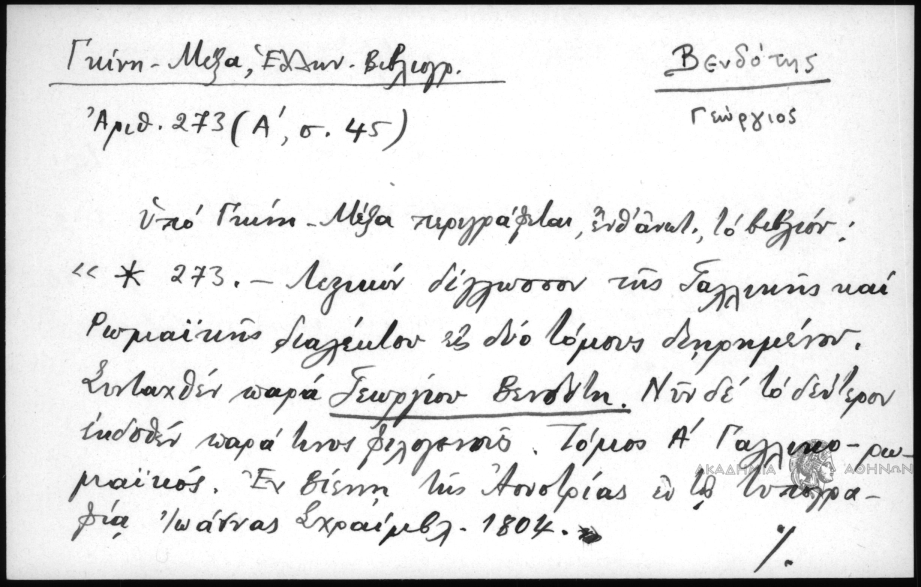 Γκίνη - Μέξα, Ἑλλην. Βιβλιογρ.
Βενδότης
Γεώργιος
Ἀριθ. 273 (Α΄, σ. 45)
ὑπό Γκίνη - Μέξα περιγράφεται, ἔνθ' ἀνωτ., τό βιβλίον:
« * 273. - Λεξικόν δίγλωσσον τῆς Γαλλικῆς καί
Ρωμαϊκῆς διαλέκτου εἰς δύο τόμους διῃρημένον.
Συνταχθέν παρά Γεωργίου Βενδότη. Νῦν δέ τό δεύτερον
ἐκδοθέν παρά τινος φιλογενοῦς. Τόμος Α΄ Γαλλικο-ρω-
μαϊκός. Ἐν Βιέννῃ τῆς Ἀουστρίας ἐν τῇ τυπογρα-
φίᾳ Ἰωάννας Σχραίμβλ. 1804.
ΑΚΑΔΗΜΙΑ ΑΘΗΝΩΝ
./.